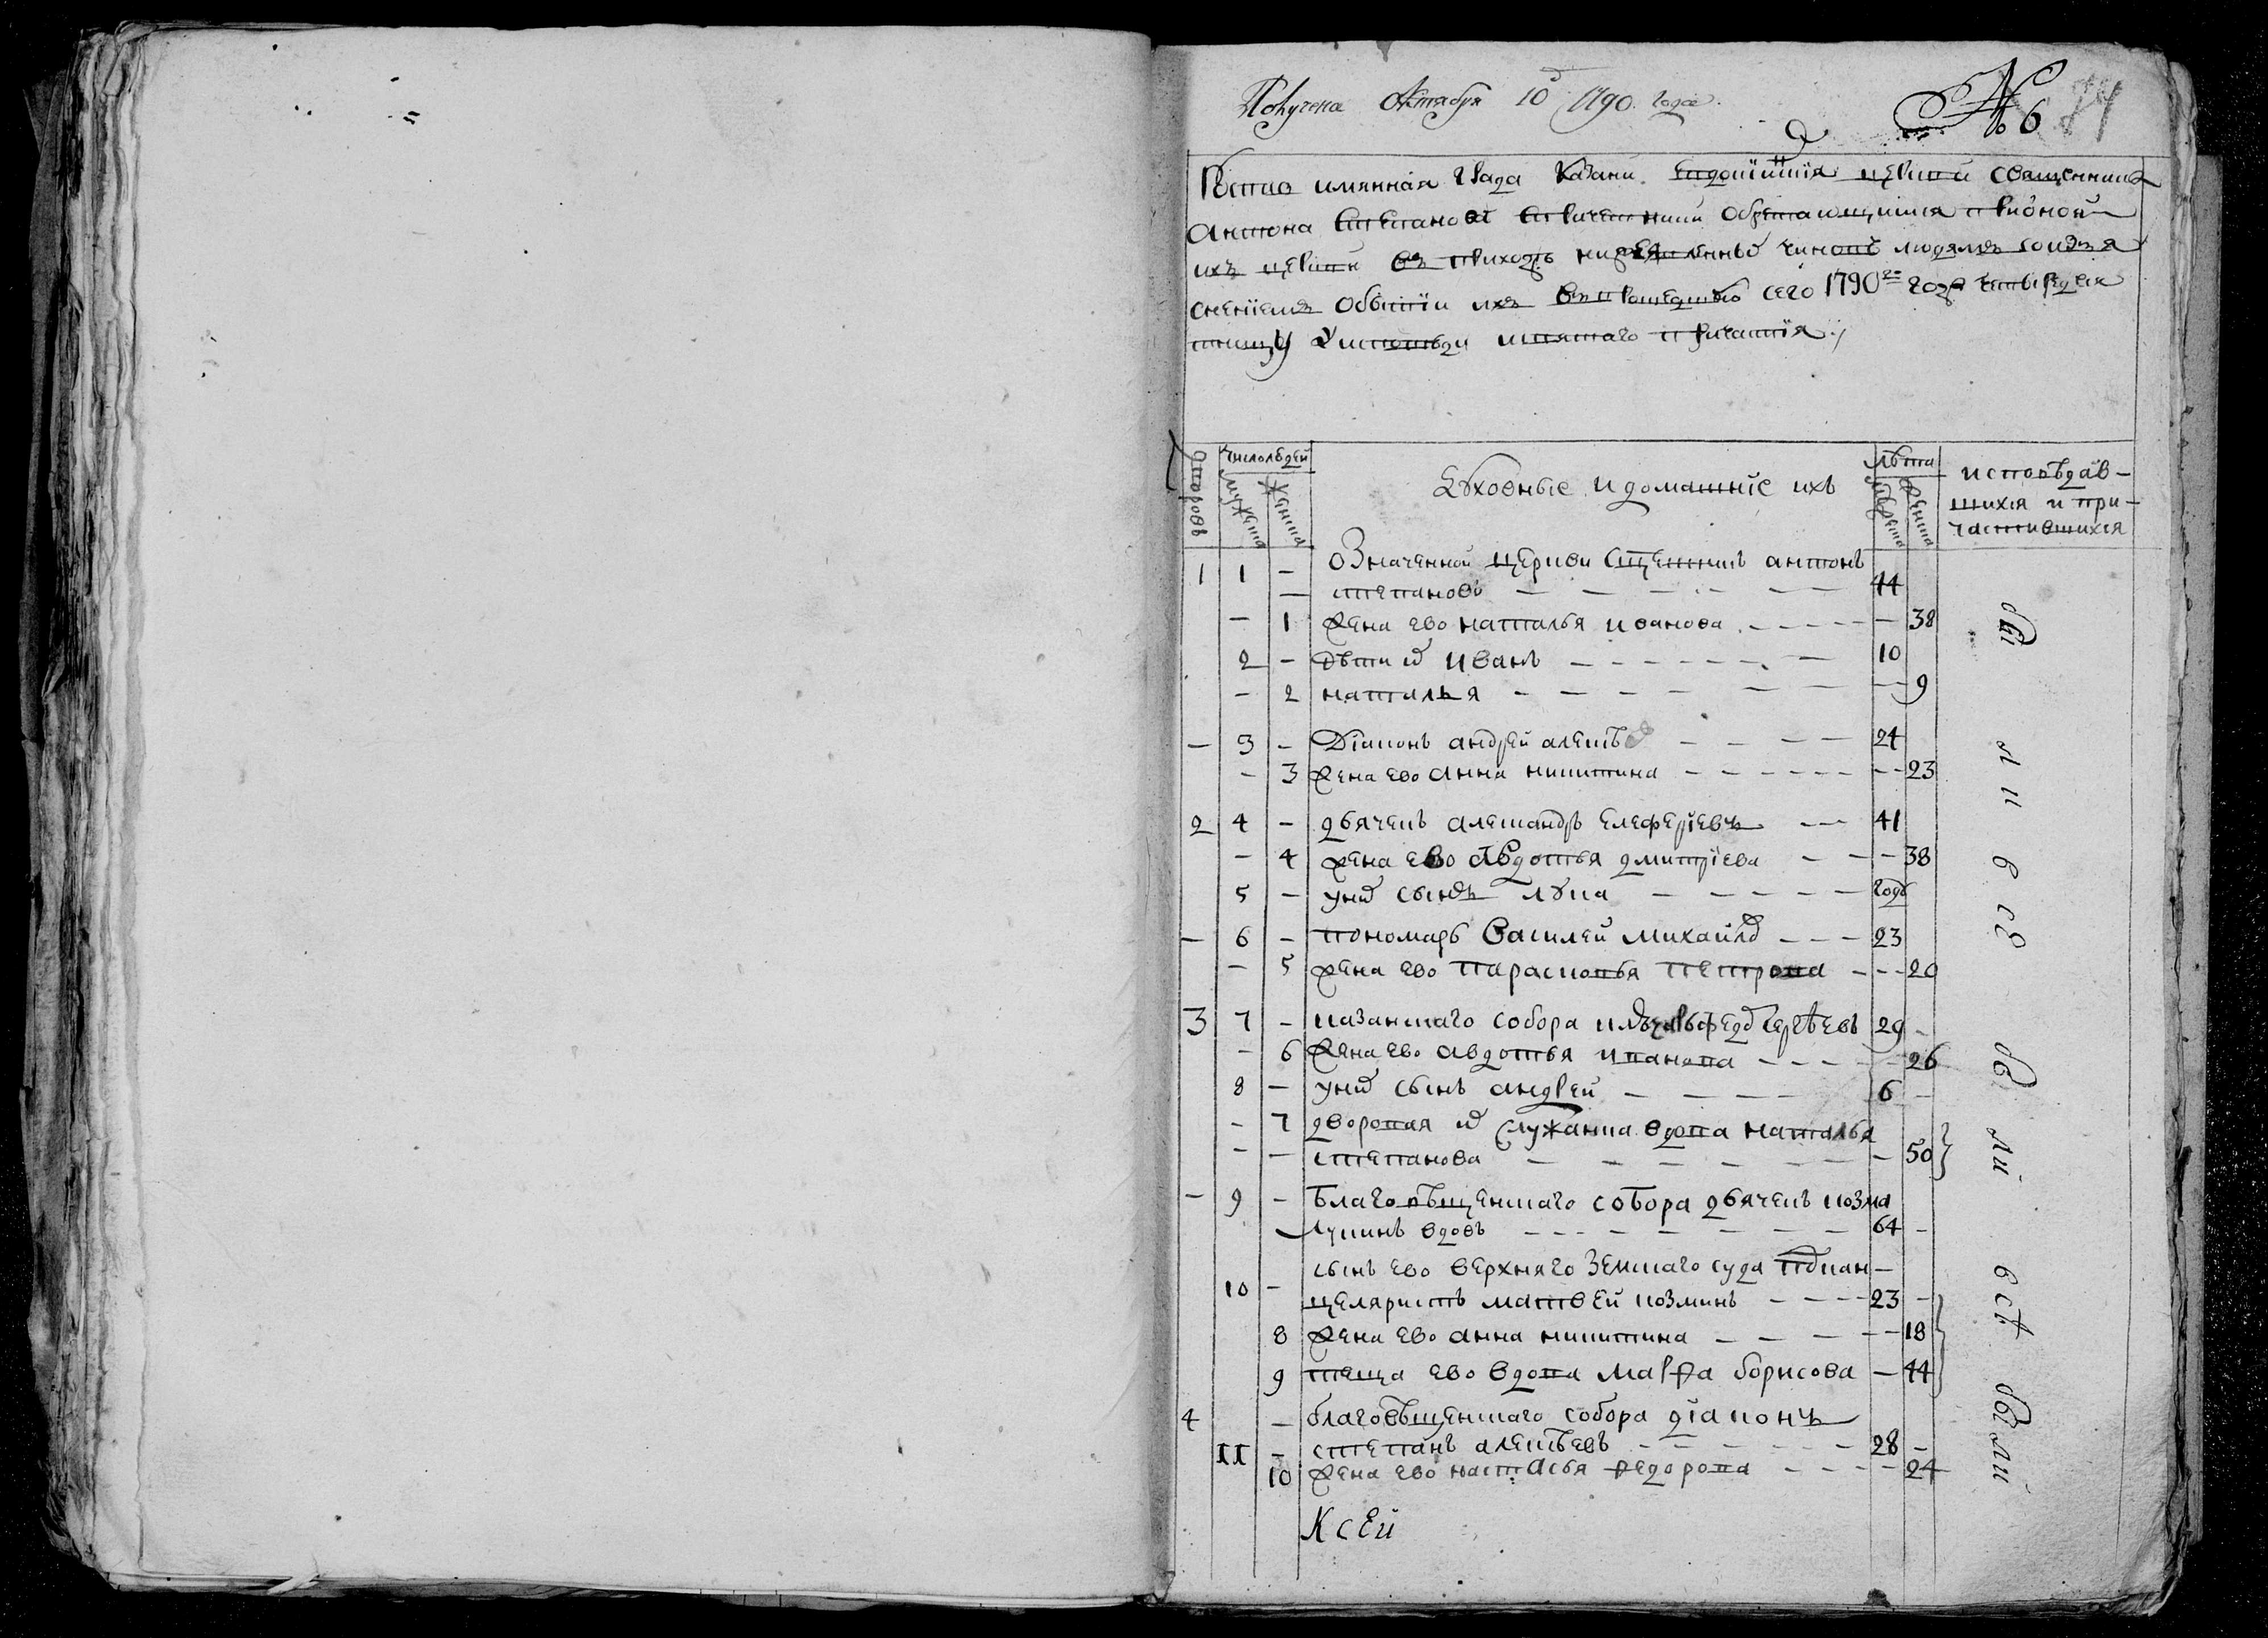 Получена октября 10 1790 года.
№ 6 74
Роспись имянная града Казани Евдокиїнския церкви священника
Антона Степанова с причетники обретающимися при оной
ихъ церкви въ приходъ нижеявленныхъ чиновъ людямъ со изъя
снениемъ о бытїи ихъ въ прошедшую сего 1790го года четыредеся
тницу у исповѣди и святаго причастїя
дворовъ
число людей
мужеска
женска
Духовные и домашнїе ихъ
лѣта
мужеска
женска
исповѣдав-
шихся и при-
частившихся
1 1 - означенной церкви сщенникъ антонъ
— степановъ 44
- 1 жена ево наталья иванова - 38
2 - дѣти их иванъ 10
- 2 наталья 9
- 3 - Дїаконъ андрей алексѣев 24
- 3 жена ево анна никитина 23
2 4 - дьячекъ александръ елеферїевъ 41
- 4 жена ево авдотья дмитрїева 38
5 - у них сынъ лука годъ
- 6 - пономарь василей михайлов 23
- 5 жена ево парасковья петрова 20
3 7 - казанскаго собора ключарь федор сергѣевъ 29
- 6 жена ево авдотья иванова 26
8 - у них сынъ андрей 6
- 7 дворовая их служанка вдова наталья
- - степанова 50
- 9 - благовѣщенскаго собора дьячекъ козма
лукинъ вдовъ 64
сынъ ево верхняго земскаго суда подкан-
10 - целяристъ матвей козминъ 23
8 жена ево анна никитина 18
9 теща ево вдова марфа борисова 44
4 - благовѣщенскаго собора дїаконъ
11 - степанъ алексѣевъ 28
10 жена ево настасья федорова 24
К сей
были в св
были в св были